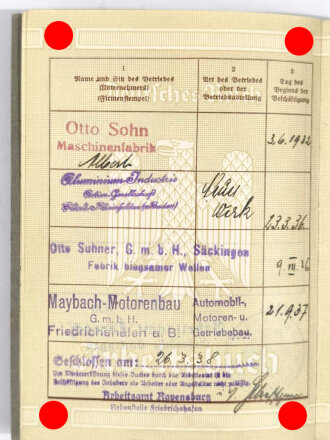 1
Name und Sitz des Betriebes
(Unternehmers)
(Firmenstempel)
2
Art des Betriebes
oder der
Betriebsabteilung
3
Tag des
Beginns der
Beschäftigung
Otto Sohn
Maschinenfabrik
Albert
Aluminium-Industrie
Aktien-Gesellschaft
Werk
23.3.36
Otto Suhner, G.m.b.H., Säckingen
Fabrik biegsamer Wellen
9 VII 36
Maybach-Motorenbau
G.m.b.H.
Friedrichshafen a. B.
Automobil-,
Motoren- u.
Getriebebau.
21.9.37
Geschlossen am: 26.3.38
Arbeitsamt Ravensburg
Nebenstelle Friedrichshafen